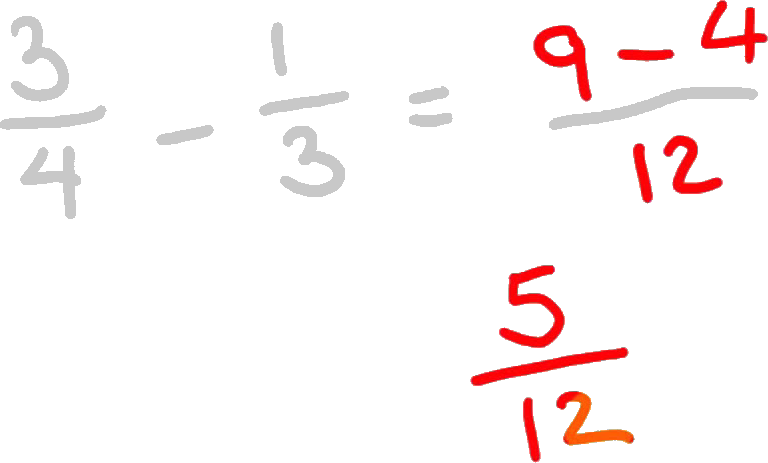 3/4 - 1/3 = 9 - 4/12
5/12